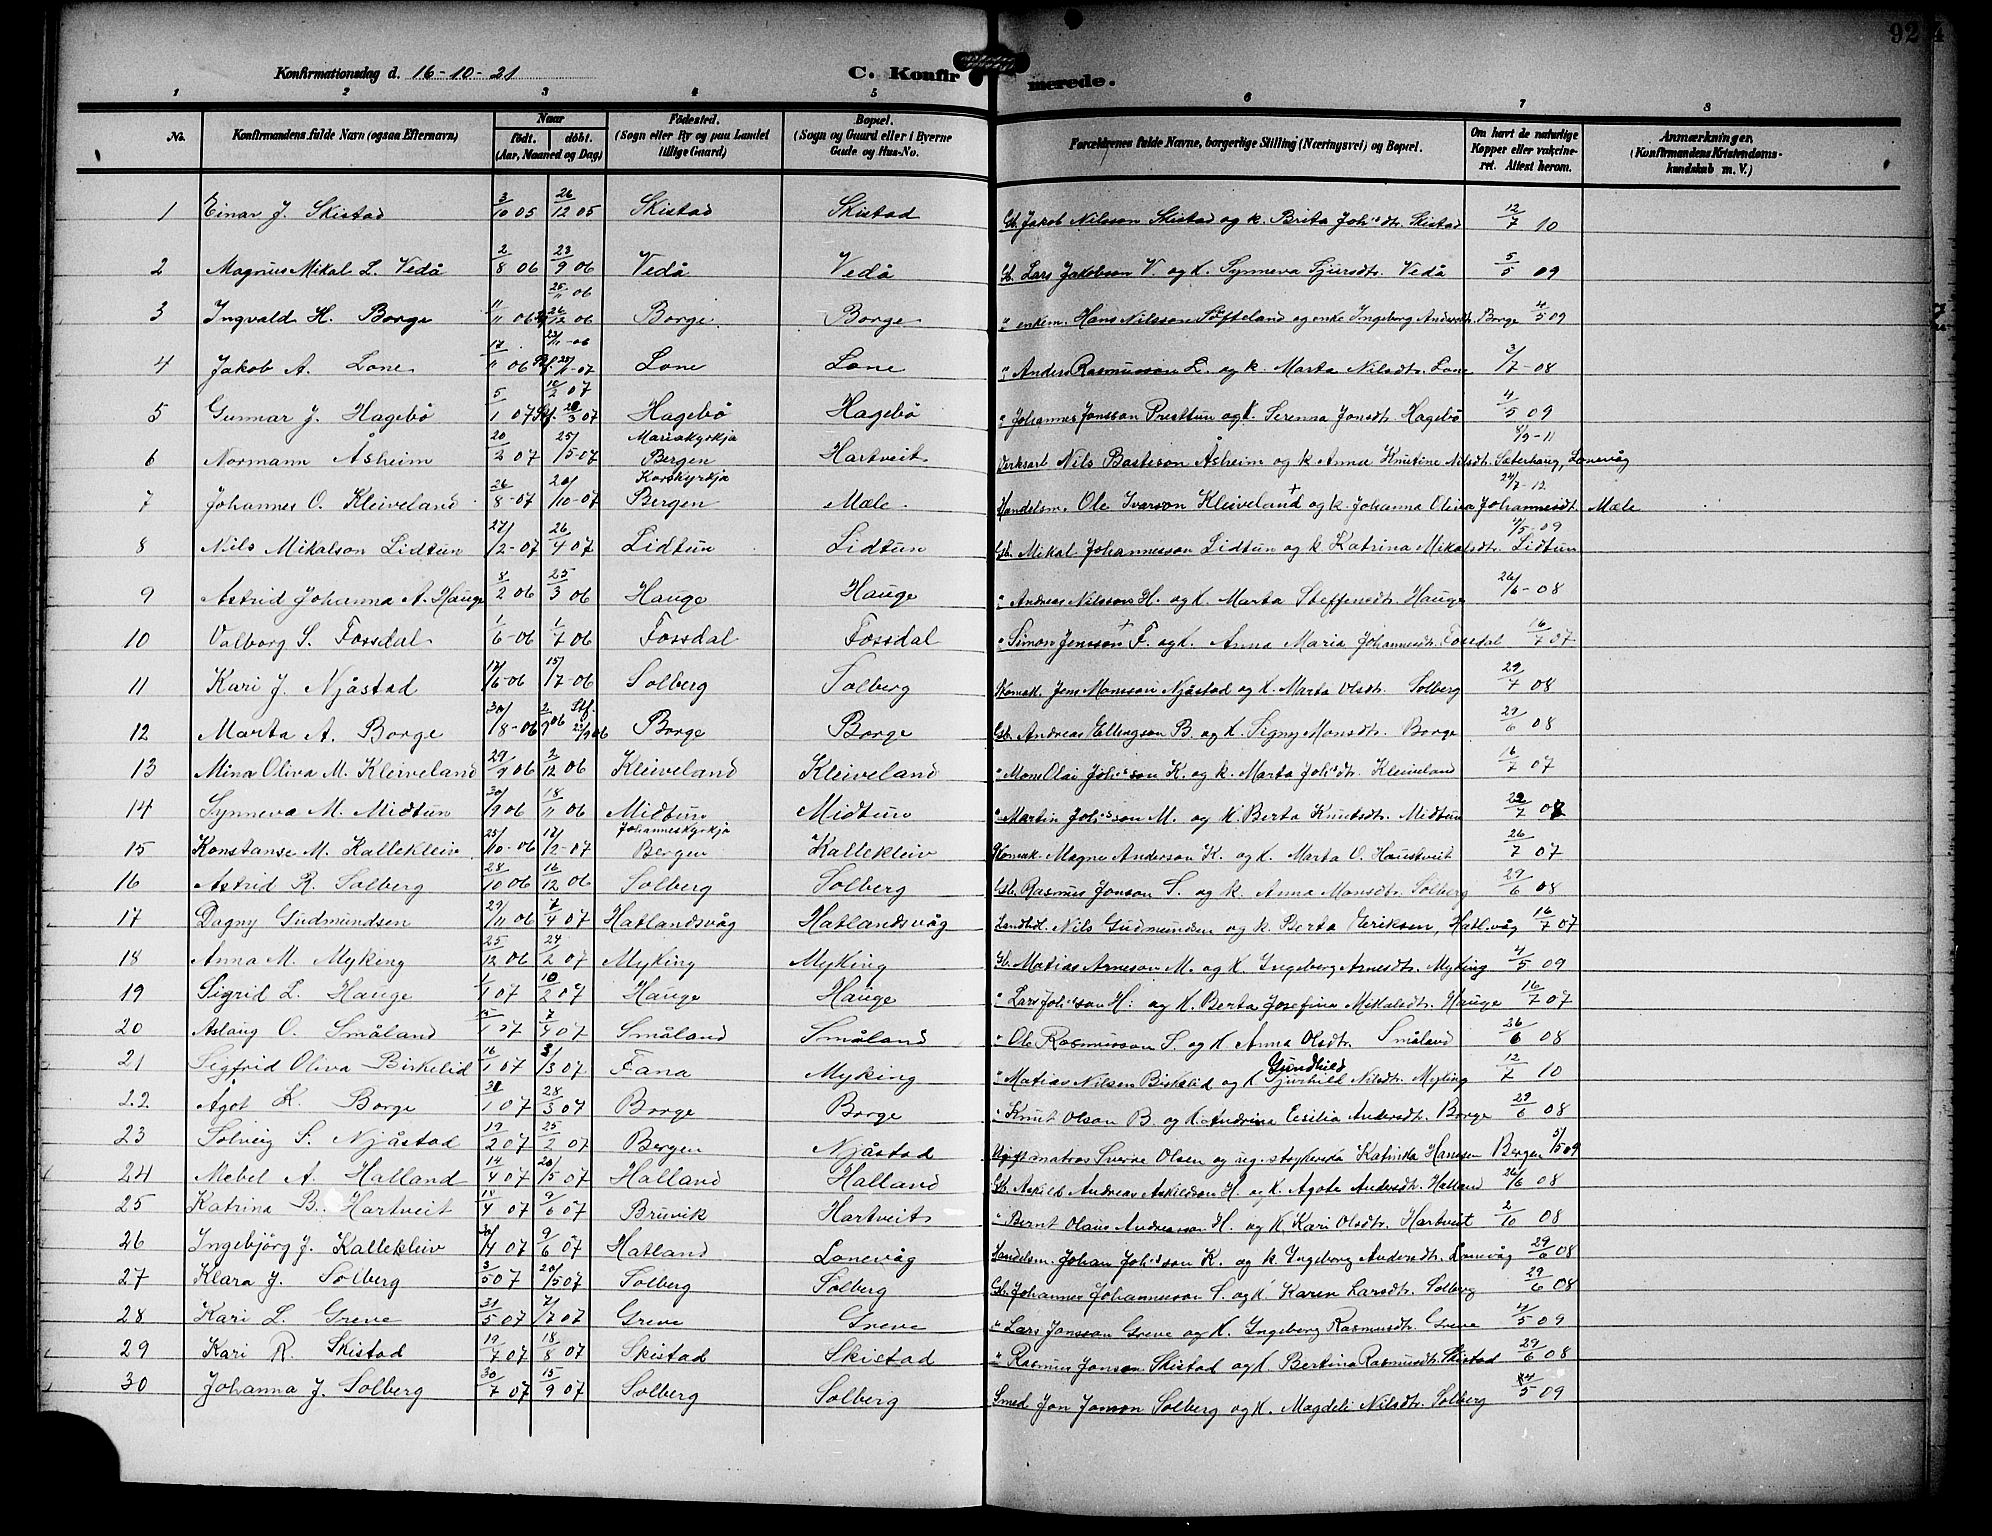 92
Konfirmationsdag d. 16-10-21 C. Konfirmerede.
1 2 3 4 5 6 7 8
No. Konfirmandens fulde Navn (ogsaa Efternavn) Naar født. døbt. (Aar, Maaned og Dag) Fødested. (Sogn eller By og paa Landet tillige Gaard) Bopæl. (Sogn og Gaard eller i Byerne Gade og Hus-No. Forældrenes fulde Navne, borgerlige Stilling (Næringsvei) og Bopæl. Om havt de naturlige Kopper eller vakcineret. Attest herom. Anmærkninger. (Konfirmandens Kristendomskundskab m. V.)
1 Einar J. Skistad 3/10 05 26/12 05 Skistad Skistad Gb. Jakob Nilsson Skistad og k. Brita Joh's dtr. Skistad 12/7 10
2 Magnus Mikal L. Vedå 2/8 06 23/9 06 Vedå Vedå Gb. Lars Jakobson V. og K. Synneva Sjursdtr. Vedå 5/5 09
3 Ingvald H. Borge 11/11 06 25/11 06 26/12 06 Borge Borge " enkem. Hans Nilsson Søfteland og enke Ingeborg Andersdtr. Borge 4/5 09
4 Jakob A. Lone 17/11 06 Lone Lone " Anders Rasmusson L. og k. Marta Nilsdtr. Lone 3/7-08
5 Gunnar J. Hagebø 5/1 07 10/2 07 Stf. 20/3 07 Hagebø Hagebø " Johannes Jonsson Presttun og K. Serenna Jonsdtr. Hagebø 4/5 09
6 Normann Åsheim 20/2 07 25/5-07 Mariakyrkja Bergen Hartveit Verksarb. Nils Basteson Åsheim og k. Anna Knutine Nilsdtr. Sæterhaug, Lonevåg 8/9-11
7 Johannes O. Kleiveland 26/8-07 20/10-07 Korskyrkja Bergen Mæle Handelsm. Ole Ivarson Kleiveland + og k. Johanna Oliva Johannesdt. Mæle 24/7-12
8 Nils Mikalson Lidtun 27/2-07 26/4 07 Lidtun Lidtun Gb. Mikal Johannesson Lidtun og k Katrina Mikalsdtr. Lidtun 4/5-09
9 Astrid Johanna A. Hauge 8/2 06 25/3 06 Hauge Hauge " Andreas Nilsson H. og K. Marta Steffensdtr. Hauge 26/6-08
10 Valborg S. Fossdal 1/6-06 1/7 06 Fossdal Fossdal " Simon Jensson + F. og K. Anna Maria Johannesdtr. Fossdal 16/7 07
11 Kari J. Njåstad 17/6-06 15/7-06 Solberg Solberg Skomak. Jens Monsson Njåstad og K. Marta Olsdtr. Solberg 29/7 08
12 Marta A. Borge 30/8-06 2/9 06 Stf. 23/9 06 Borge Borge Gb. Andreas Ellingson B. og K. Signy Monsdtr. Borge 29/6 08
13 Mina Oliva M. Kleiveland 29/9 06 2/12 06 Kleiveland Kleiveland " Mons Olai Joh's son K. og k. Marta Joh's dtr. Kleiveland 16/7 07
14 Synneva M. Midtun 30/9 06 18/11 06 Midtun Midtun " Martin Joh's son M. og K. Berta Knutsdtr. Midtun
15 Konstanse M. Kallekleiv 25/10-06 17/2-07 Johanneskyrkja Bergen Kallekleiv Skomak. Magne Anderson K. og K. Marta O. Haustveit 26/7 07
16 Astrid R. Solberg 28/10 06 16/12 06 Solberg Solberg Gb. Rasmus Jonson S. og k. Anna Monsdtr. Solberg 29/6 08
17 Dagny Gudmundsen 29/11 06 7/4 07 Hatlandsvåg Hatlandsvåg Landhdl. Nils Gudmundsen og k. Berta Eriksen, Hatl.våg 16/7 07
18 Anna M. Myking 25/12 06 24/2 07 Myking Myking Gb. Matias Arneson M. og K. Ingeborg Arnesdtr. Myking 4/5 09
19 Sigrid L. Hauge 1/1 07 10/2 07 Hauge Hauge " Lars Joh's son H. og K. Berta Josefina Mikalsdtr. Hauge 16/7 07
20 Aslaug O. Småland 15/1 07 7/4 07 Småland Småland " Ole Rasmusson S. og K Anna Olsdtr. Småland 26/6 08
21 Sigfrid Oliva Birkelid 16/1 07 3/3 07 Fana Myking " Matias Nilsen Birkelid og K Gundhild Nilsdtr. Myking 12/7 10
22 Ågot K. Borge 31/1 07 28/3 07 Borge Borge " Knut Olson B. og K. Andrina Cesilia Andersdtr. Borge 29/6 08
23 Solveig S. Njåstad 19/2 07 25/2 07 Bergen Njåstad Ugift matros Sverre Olsen og ug. Katrinka Hansen Bergen 5/5 09
24 Mebel A. Halland 14/4 07 20/5 07 Halland Halland Gb. Askild Andreas Askildson H. og K. Agote Andersdtr. Halland 26/6 08
25 Katrina B. Hartveit 18/4 07 9/6 07 Bruvik Hartveit " Bernt Olaus Andreasson H. og K Kari Olsdtr. Hartveit 2/10 08
26 Ingebjørg J. Kallekleiv 30/4 07 9/6 07 Hatland Lonevåg Handelsm. Johan Joh's son K. og k. Ingeborg Andersdtr. Lonevåg 29/6 08
27 Klara J. Solberg 3/5 07 20/5 07 Solberg Solberg Gb. Johannes Johannesson S. og K. Karen Larsdtr. Solberg 29/6 08
28 Kari L. Greve 31/5 07 7/7 07 Greve Greve " Lars Jonsson Greve og K. Ingeborg Rasmusdtr. Greve 4/5 09
29 Kari R. Skistad 19/7 07 18/8 07 Skistad Skistad " Rasmus Jonson Skistad og K Bertina Rasmusdtr. Skistad 29/6 08
30 Johanna J. Solberg 30/7 07 15/9 07 Solberg Solberg Smed Jon Jonson Solberg og K. Magdeli Nilsdtr. Solberg 4/5 09